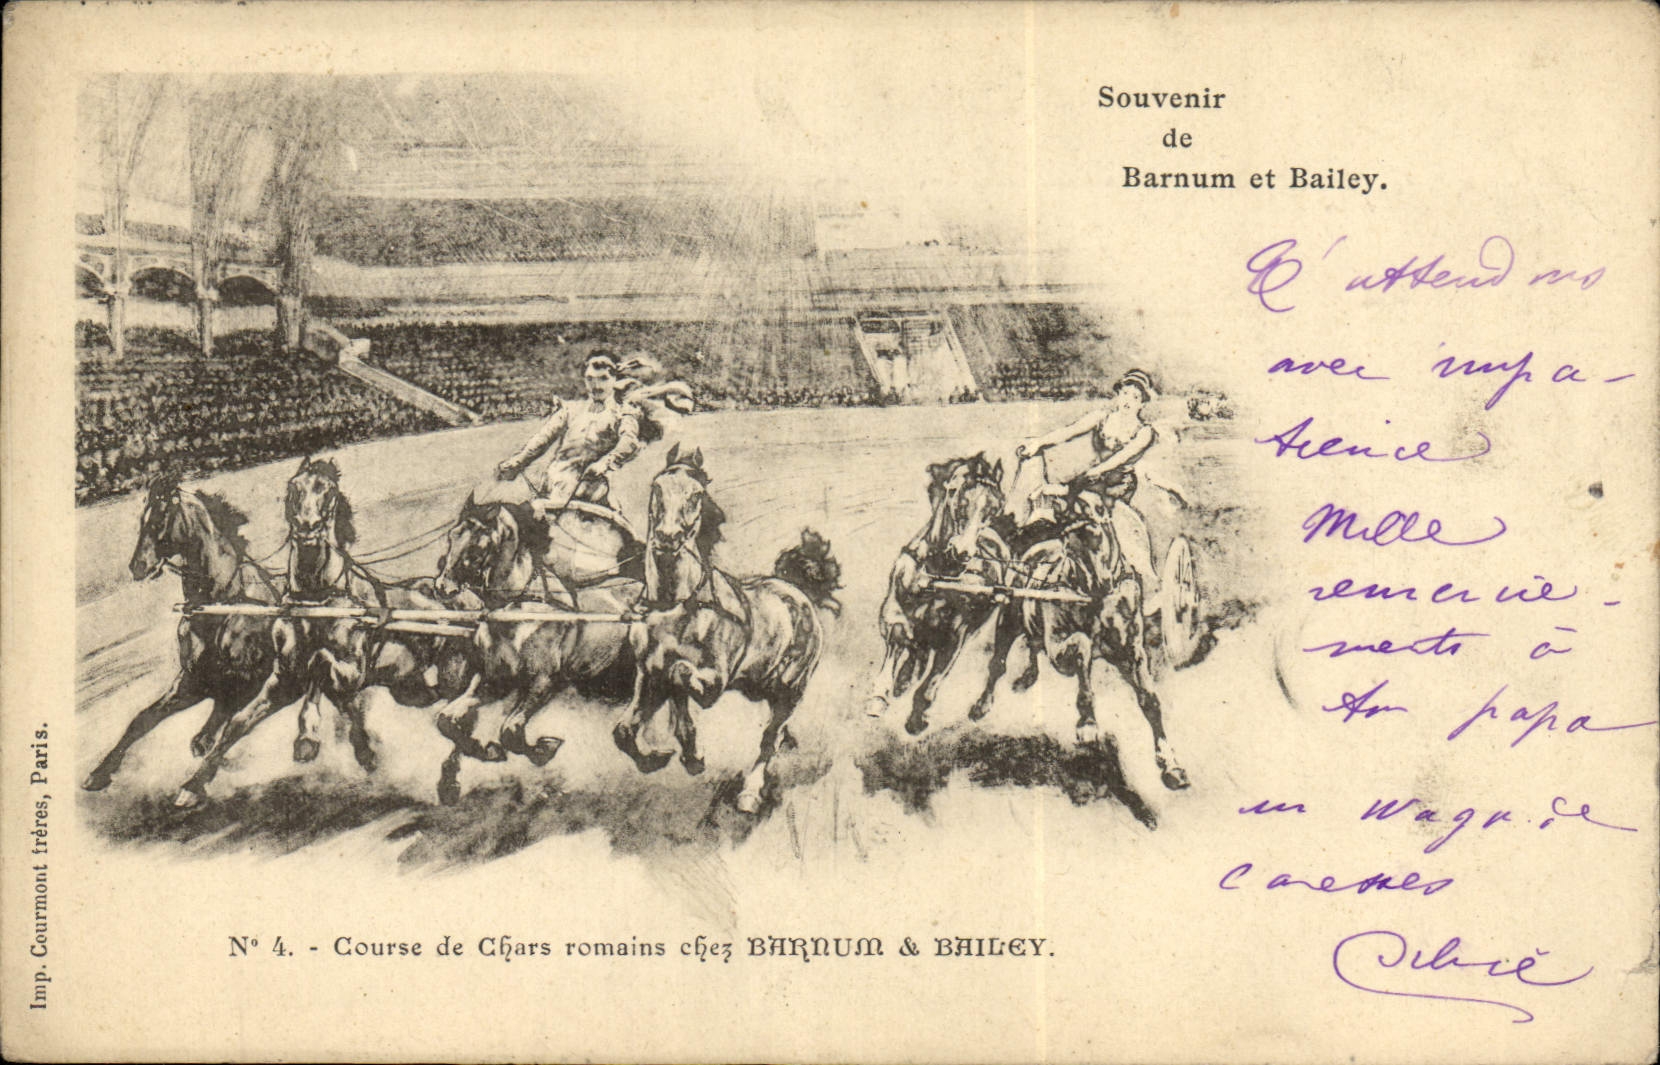 Souvenir
de
Barnum et Bailey.
T'attendons
avec impa-
tience
Mille
remercie-
ments à
ton papa
un wagon de
caresses
Imp. Courmont frères, Paris.
Nº 4. - Course de Chars romains chez BARNUM & BAILEY.